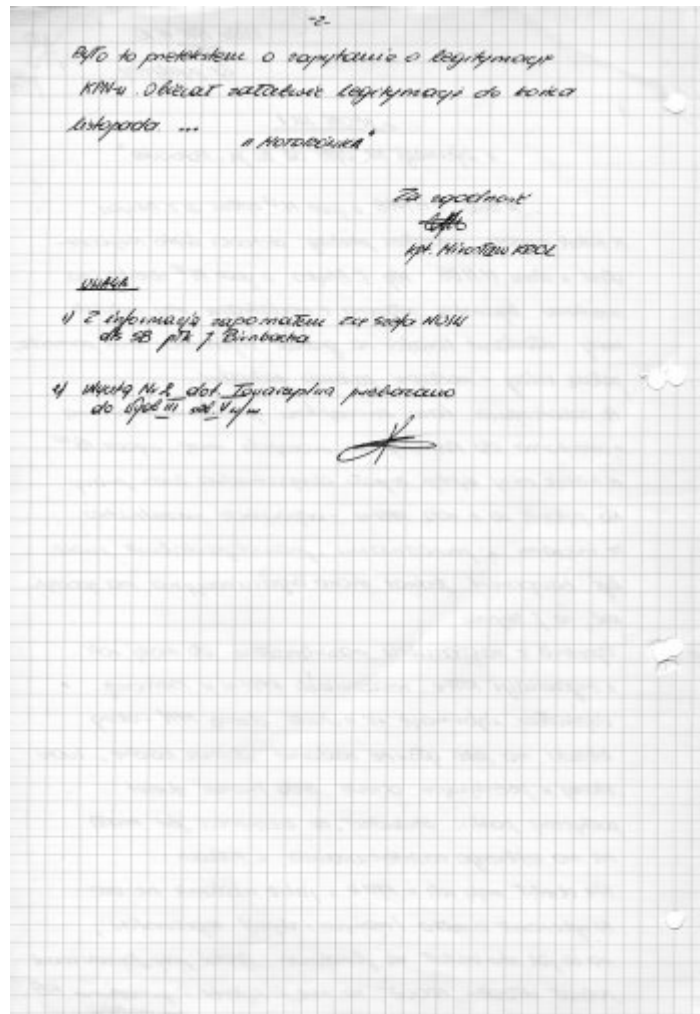 -2-
Było to pretekstem o zapytanie o legitymację
KPN-u. Obiecał załatwić legitymację do końca
listopada ...
"MOTORÓWKA"
Za zgodność
kpt. Mirosław KRÓL
UWAGA
1) Z informacją zapoznałem z-cę szefa WUSW
ds SB płk J. Birnbacha
2) Wyciąg Nr 2 dot. Towarzystwa przekazano
do Wydz III